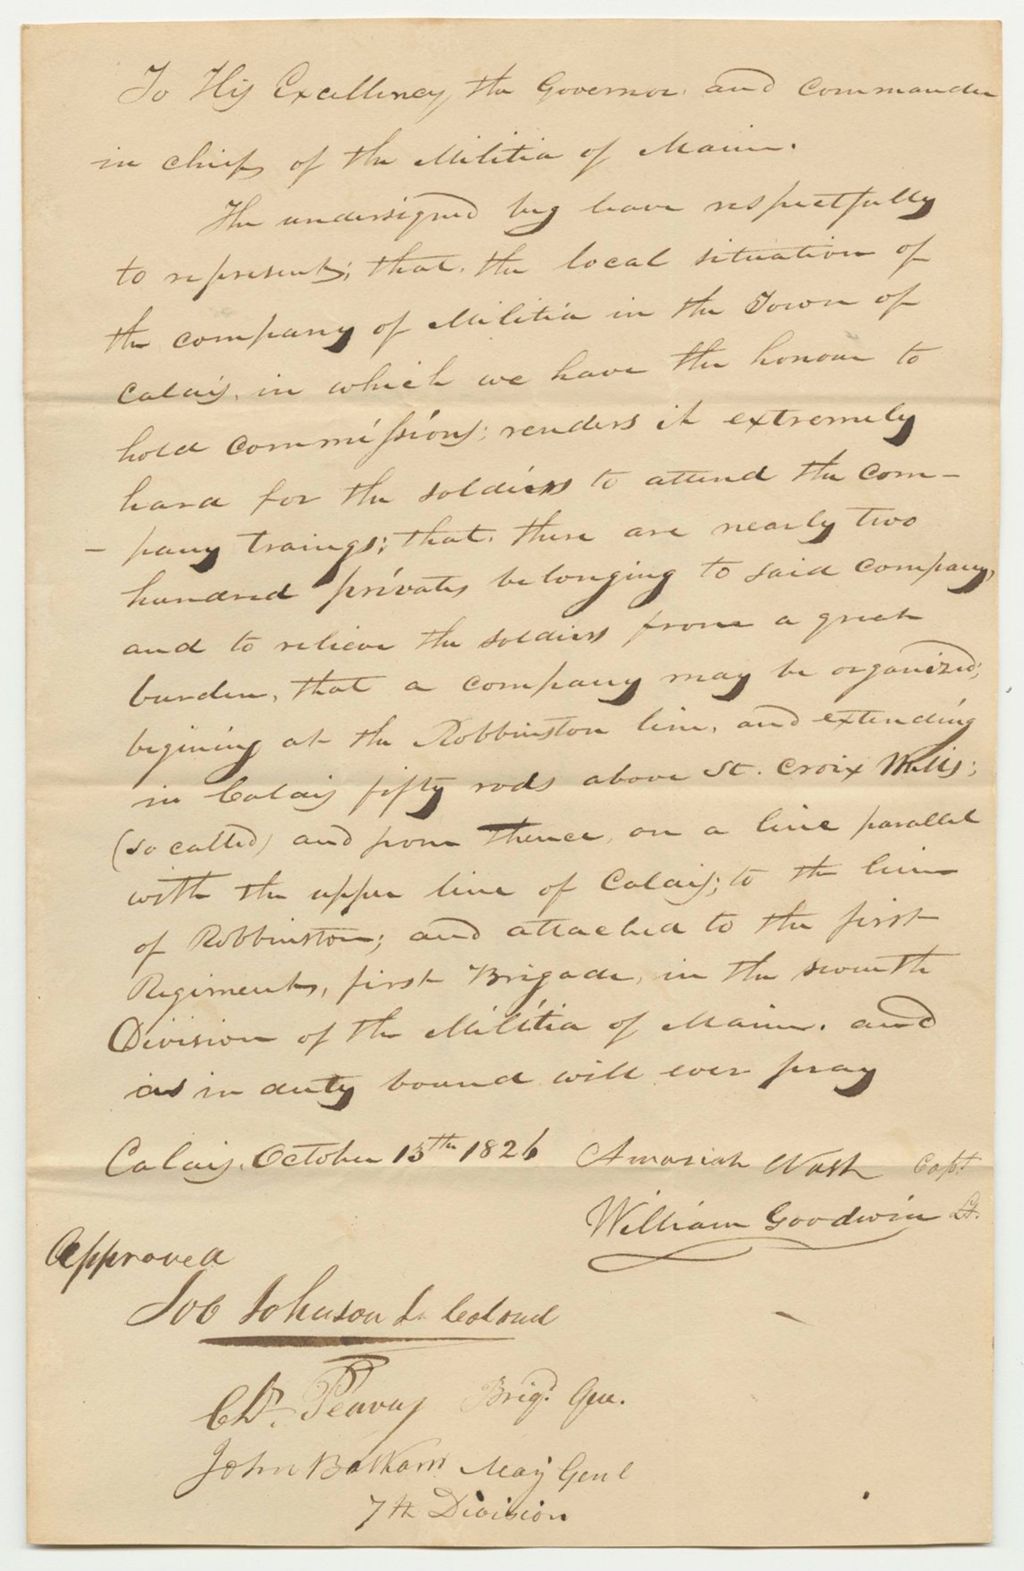 To His Excellency the Governor and Commander
in chief of the Militia of Maine.
The undersigned beg leave respectfully
to represent; that the local situation of
the company of Militia in the Town of
Calais, in which we have the honour to
hold Commissions; renders it extremely
hard for the soldiers to attend the com-
-pany traings; that there are nearly two
hundred privates belonging to said company,
and to relieve the soldiers from a great
burden, that a company may be organized;
begining at the Robbinston line, and extending
in Calais fifty rods above St. Croix Mills;
(so called) and from thence, on a line parallel
with the upper line of Calais; to the line
of Robbinston; and attached to the first
Regiment, first Brigade, in the seventh
Division of the Militia of Maine. and
as in duty bound will ever pray
Calais, October 15th 1826 Amasiah Nash Capt
William Goodwin Lt.
Approved
Job Johnson Lt. Colonel
Peavey Brigd. Gen.
John Balkam Maj Genl
7th Division